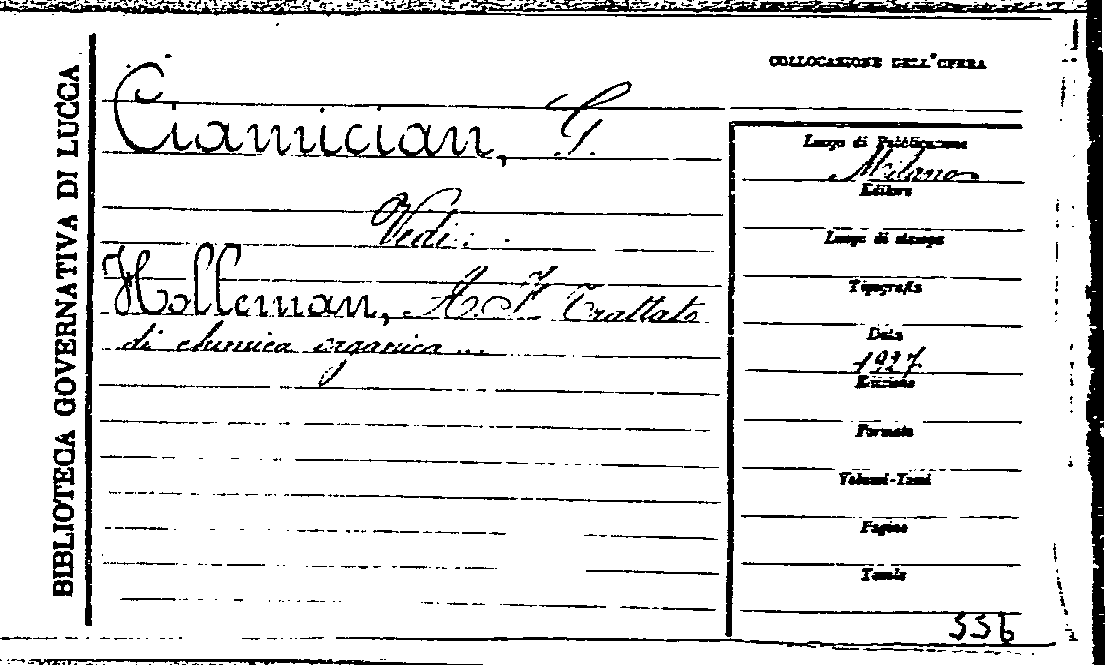 BIBLIOTECA GOVERNATIVA DI LUCCA
COLLOCAZIONE DELL'OPERA
Ciamician, G.
Vedi:
Holleman, A F. Trattato
di chimica organica ...
Luogo di Pubblicazione
Milano
Editore
Luogo di stampa
Tipografia
Data
1927
Edizione
Formato
Volumi-Tomi
Pagine
Tavole
556